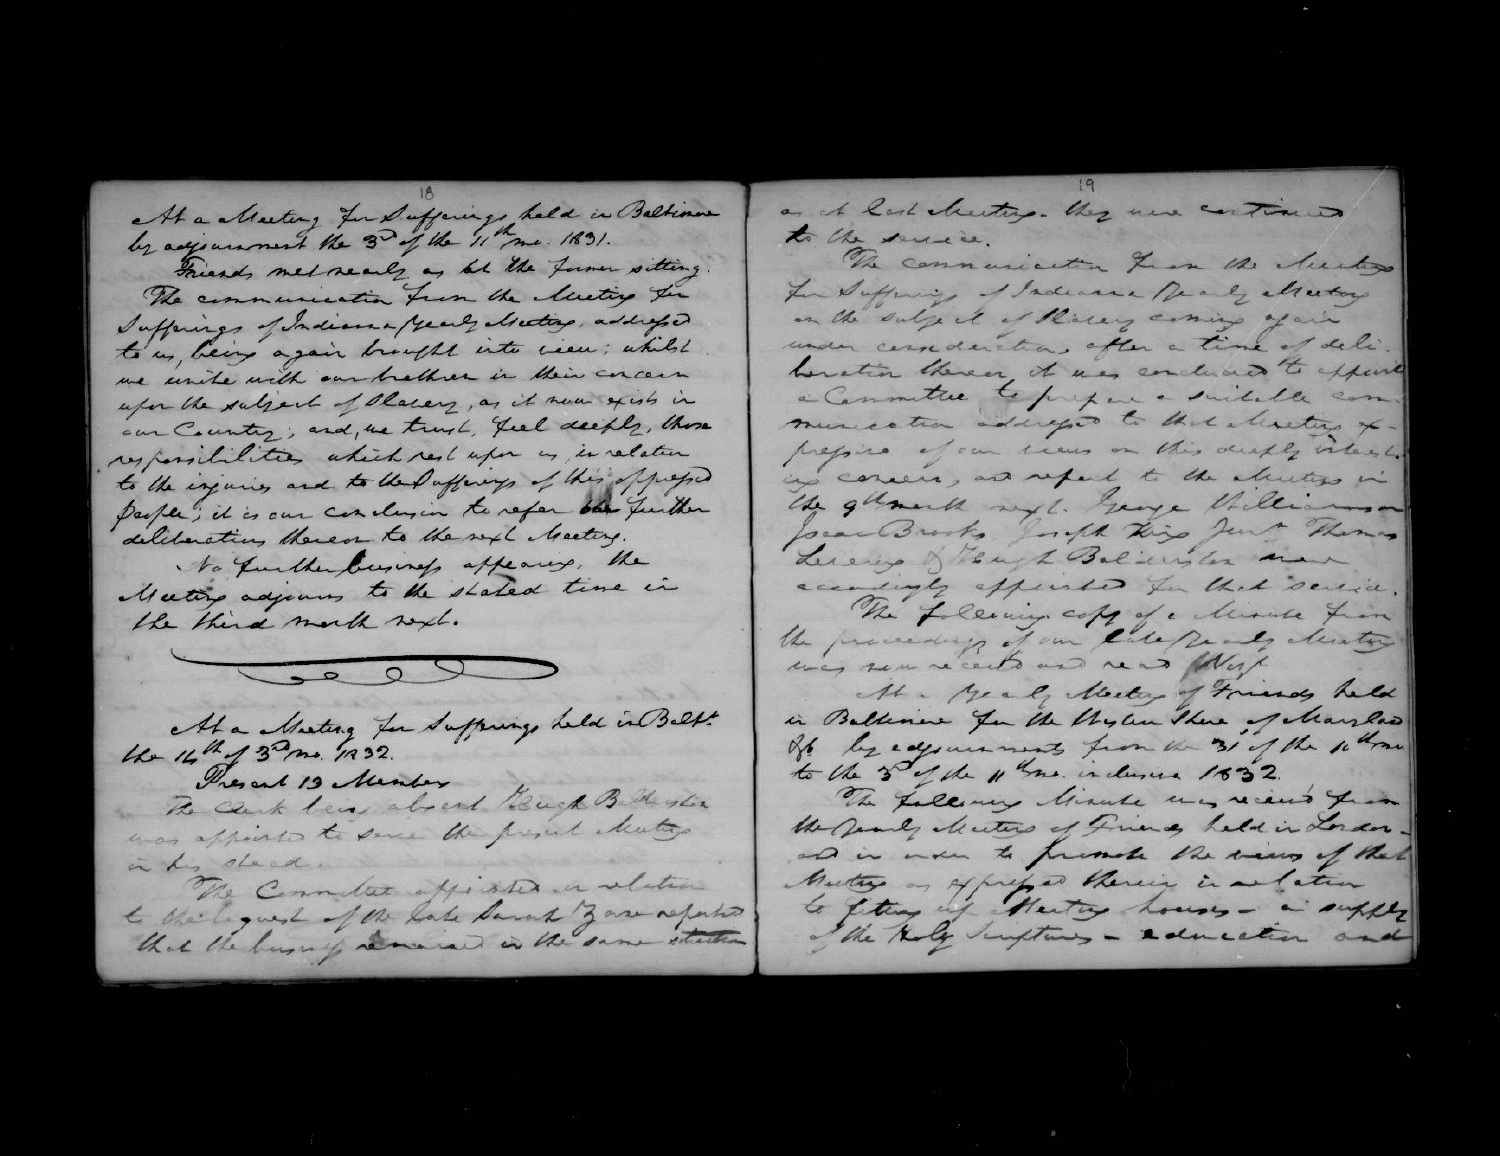 18
At a Meeting for Sufferings held in Baltimore
by adjournment the 3d of the 11th mo. 1831.
Friends met nearly as at the former sitting.
The communication from the Meeting for
Sufferings of Indiana Yearly Meeting, addressed
to us, being again brought into view; whilst
we unite with our brethren in their concern
upon the subject of Slavery, as it now exists in
our Country; and, we trust, feel deeply, those
responsibilities which rest upon us in relation
to the injuries and to the Sufferings of this oppressed
People; it is our conclusion to refer the further
deliberation thereon to the next Meeting.
No further business appearing, the
Meeting adjourns to the stated time in
the third month next.
At a Meeting for Sufferings held in Balt.
the 14th of 3rd mo. 1832.
Present 13 Members
The Clerk being absent Hugh Balderston
was appointed to serve the present Meeting
in his stead.
The Committee appointed in relation
to the bequest of the late Sarah Zane reported
that the business remained in the same situation
19
as at last Meeting. they were continued
to the service.
The communication from the Meeting
for Sufferings of Indiana Yearly Meeting
on the subject of Slavery coming again
under consideration, after a time of deli-
beration thereon, it was concluded to appoint
a Committee to prepare a suitable com-
munication addressed to that Meeting ex-
pressive of our views on this deeply interest-
ing concern, and report to the Meeting in
the 9th month next. George Williamson
Isaac Brooks, Joseph King Junr Thomas
& Hugh Balderston were
accordingly appointed for that service.
The following copy of a Minute from
the proceedings of our late Yearly Meeting
was now received and read
At a Yearly Meeting of Friends held
in Baltimore for the Western Shore of Maryland
&c by adjournments from the 31 of the 10th mo
to the 3d of the 11th mo. inclusive 1832.
The following Minute was received from
the Yearly Meeting of Friends held in London -
and in order to promote the views of that
Meeting as expressed therein in relation
to fitting up Meeting houses - a supply
of the Holy Scriptures - education and